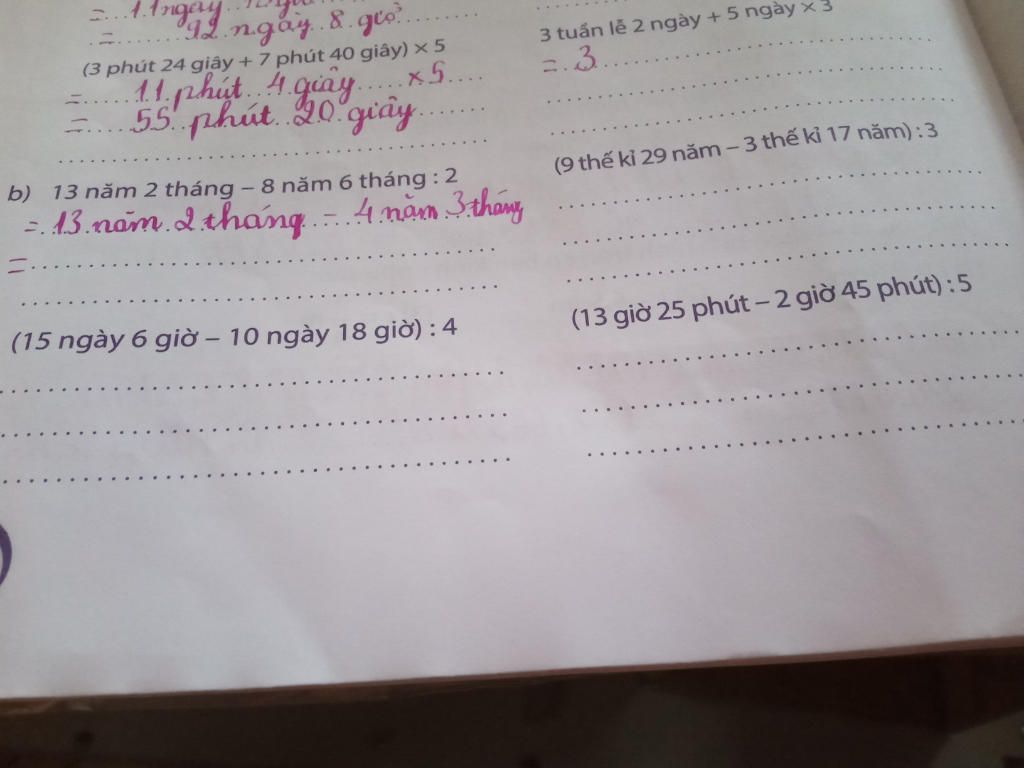 = 11 ngày
= 92 ngày 8 giờ
(3 phút 24 giây + 7 phút 40 giây) × 5
= 11 phút 4 giây × 5
= 55 phút 20 giây
3 tuần lễ 2 ngày + 5 ngày × 3
= 3
b) 13 năm 2 tháng – 8 năm 6 tháng : 2
= 13 năm 2 tháng – 4 năm 3 tháng
=
(9 thế kỉ 29 năm – 3 thế kỉ 17 năm) : 3
(15 ngày 6 giờ – 10 ngày 18 giờ) : 4
(13 giờ 25 phút – 2 giờ 45 phút) : 5